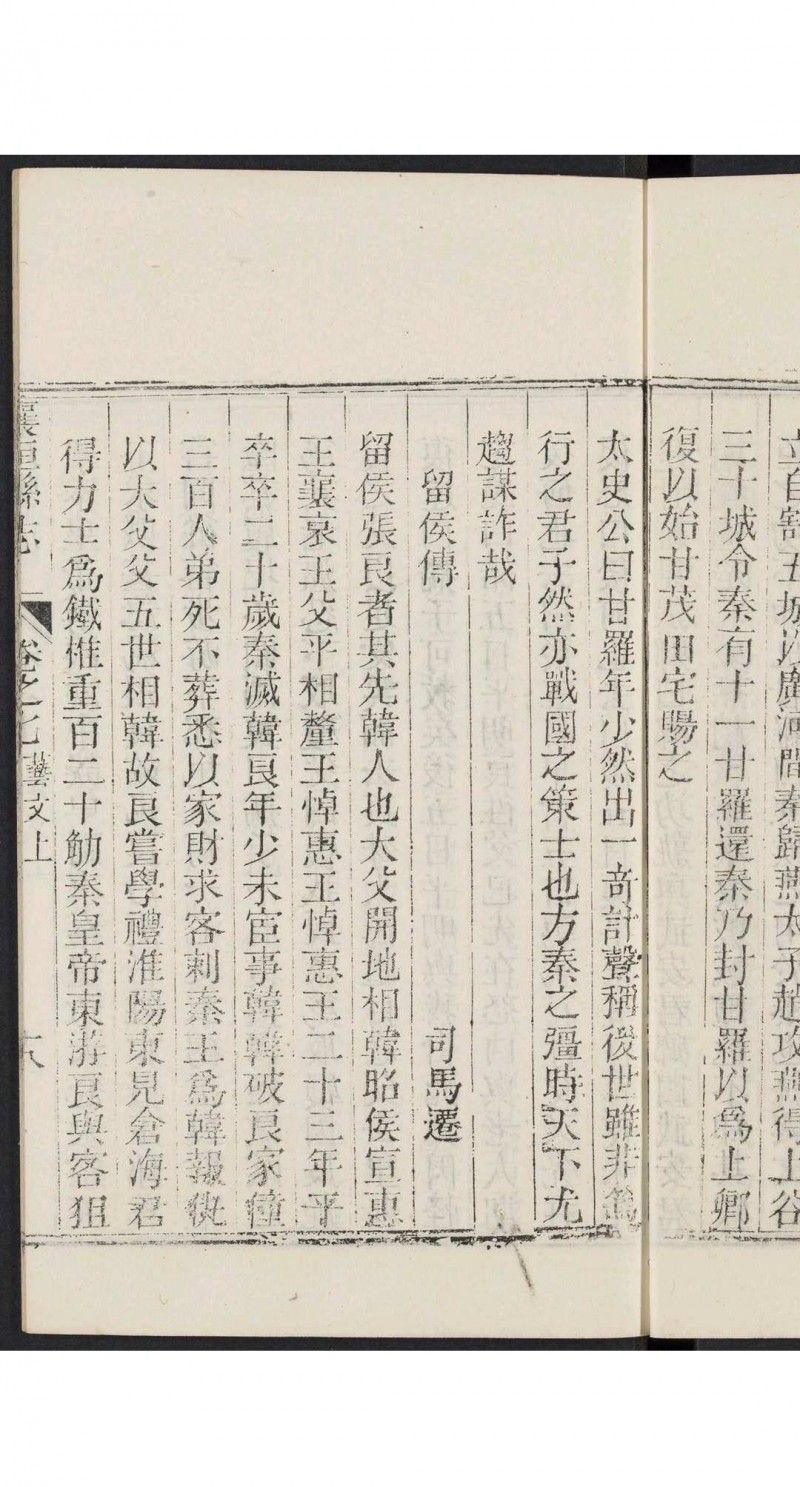 立自割五城以廣河間秦歸燕太子趙攻燕得上谷
三十城令秦有十一甘羅還秦乃封甘羅以爲上卿
復以始甘茂田宅賜之
太史公曰甘羅年少然出一奇計聲稱後世雖非篤
行之君子然亦戰國之策士也方秦之彊時天下尤
趨謀詐哉
留侯傳 司馬遷
留侯張良者其先韓人也大父開地相韓昭侯宣惠
王襄哀王父平相釐王悼惠王悼惠王二十三年平
卒卒二十歲秦滅韓良年少未宦事韓韓破良家僮
三百人弟死不葬悉以家財求客刺秦王爲韓報仇
以大父父五世相韓故良嘗學禮淮陽東見倉海君
得力士爲鐵椎重百二十觔秦皇帝東游良與客狙
襄垣縣志 卷之七 藝文上 六